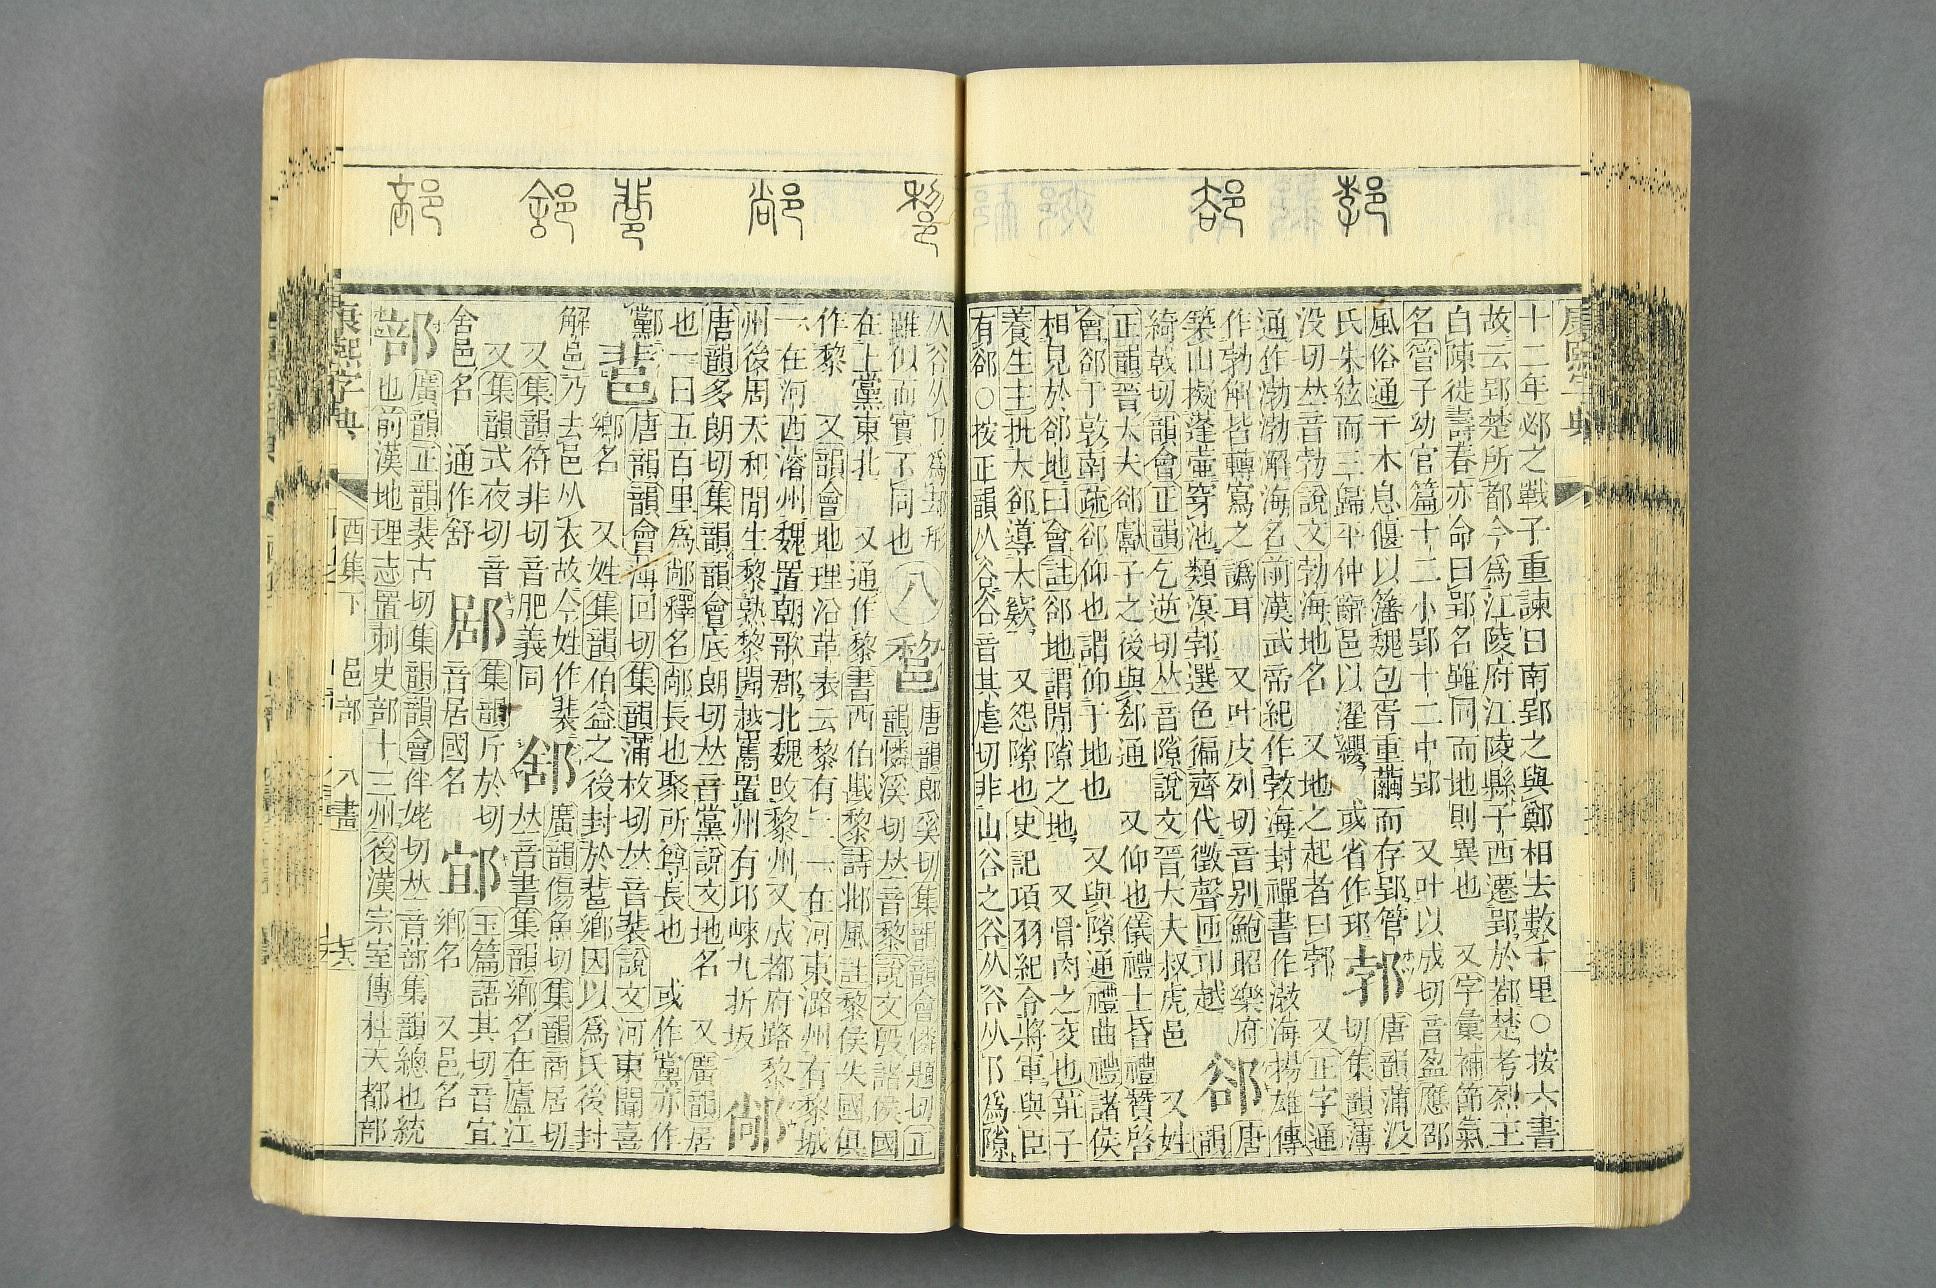 康熙字典
十二年邲之戰子重諫曰南郢之與鄭相去數千里○按六書
故云郢楚所都今爲江陵府江陵縣子西遷郢於鄀楚考烈王
自陳徙壽春亦命曰郢名雖同而地則異也　又字彙補節氣
名管子幼官篇十二小郢十二中郢　又叶以成切音盈應邵
風俗通干木息偃以藩魏包胥重繭而存郢管　郣　唐韻蒲没
氏朱絃而三歸平仲辭邑以濯纓　或省作　切集韻薄
没切𠀤音勃說文勃海地名　又地之起者曰郣　又正字通
通作渤渤澥海名前漢武帝紀作敦海封禪書作海揚雄傳
作勃解皆轉寫之譌耳　又叶皮列切音别鮑昭樂府　郤　唐
築山擬蓬壷穿池類溟郣選色徧齊代徵聲匝卭越　韻
綺戟切韻會正韻乞逆切𠀤音隙說文晉大夫叔虎邑　又姓
正韻晉大夫郤獻子之後與郄通　又仰也儀禮士昏禮贊啓
會郤于敦南疏郤仰也謂仰于地也　又與隙通禮曲禮諸侯
相見於郤地曰會註郤地謂閒隙之地　又骨肉之交也莊子
養生主批大郤導大窾　又怨隙也史記項羽紀令將軍與臣
有郤○按正韻从谷谷音其虐切非山谷之谷从谷从卩爲隙
从谷从卩爲卻形　八　𨛫　唐韻郎奚切集韻韻會憐題切正
雖似而實不同也　韻憐溪切𠀤音黎說文殷諸侯國
在上黨東北　又通作黎書西伯戡黎詩邶風註黎侯失國俱
作黎　又韻會地理沿革表云黎有二一在河東潞州有黎城
一在河西濬州魏置朝歌郡北魏改黎州又成都府路黎
州後周天和閒生黎熟黎開越巂置州有邛崍九折坂
唐韻多朗切集韻韻會底朗切𠀤音黨說文地名　又廣韻居
也一曰五百里爲釋名長也聚所尊長也　或作黨亦作
唐韻韻會薄回切集韻蒲枚切𠀤音裴說文河東聞喜
鄉名　又姓集韻伯益之後封於鄉因以爲氏後封
解邑乃去邑从衣故今姓作裴　廣韻傷魚切集韻商居切
又集韻符非切音肥義同　𠀤音書集韻鄉名在廬江
又集韻式夜切音　集韻斤於切　玉篇語其切音宜
舍邑名　通作舒　音居國名　鄉名　又邑名
部　廣韻正韻裴古切集韻韻會伴姥切𠀤音蔀集韻總也統
也前漢地理志置刺史部十三州後漢宗室傳柱天都部
康熙字典　酉集下　邑部　八畫